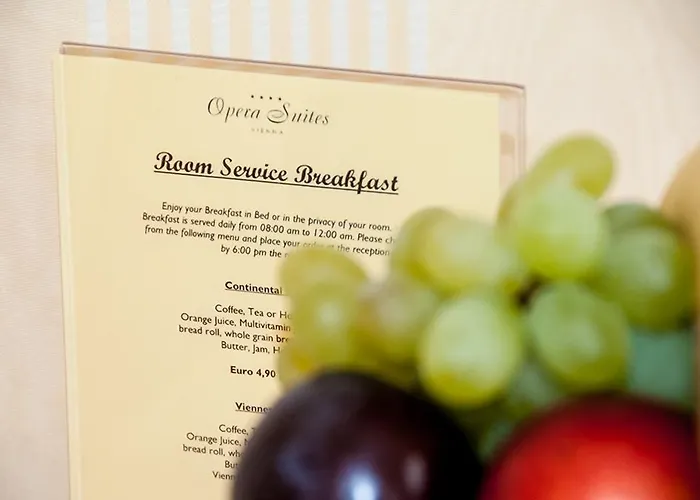 Opera Suites
VIENNA
Room Service Breakfast
Enjoy your Breakfast in Bed or in the privacy of your room.
Breakfast is served daily from 08:00 am to 12:00 am. Please
from the following menu and place your order at the reception
by 6:00 pm the
Continental
Coffee, Tea or
Orange Juice, Multivitamin
bread roll, whole grain
Butter, Jam,
Euro 4,90
Coffee,
Orange Juice,
bread roll,